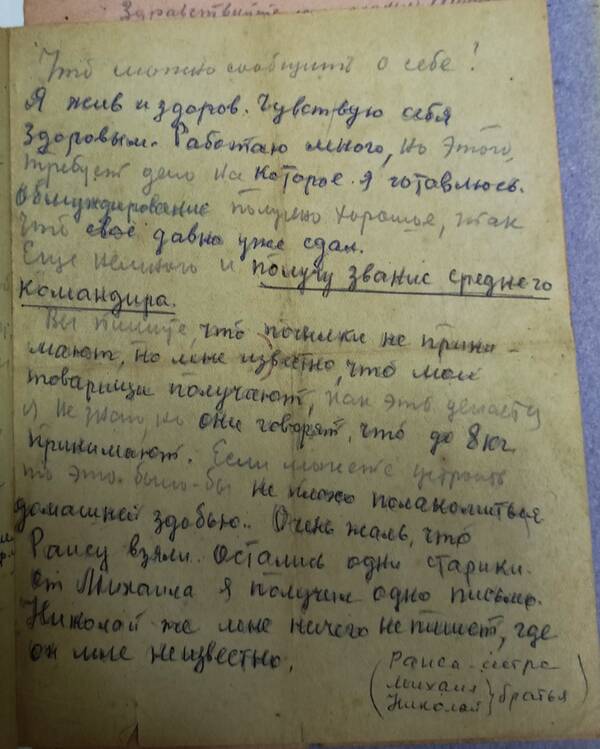 Здравствуйте
Что можно сообщить о себе!
Я жив и здоров. Чувствую себя
здоровым. Работаю много, но этого
требует дело на которое я готовлюсь.
Обмундирование получено хорошее, так
что своё давно уже сдал.
Еще немного и получу звание среднего
командира.
Вы пишите, что посылки не прини-
мают, но мне известно, что мои
товарищи получают, как это делается
я не знаю, но они говорят, что до 8 кг.
принимают. Если можете устроить
то это было-бы не плохо полакомиться
домашней здобью. Очень жаль, что
Раису взяли. Остались одни старики.
От Михаила я получил одно письмо.
Николай же мне ничего не пишет, где
он мне неизвестно.
(Раиса - сестра
Михаил
Николай } братья)